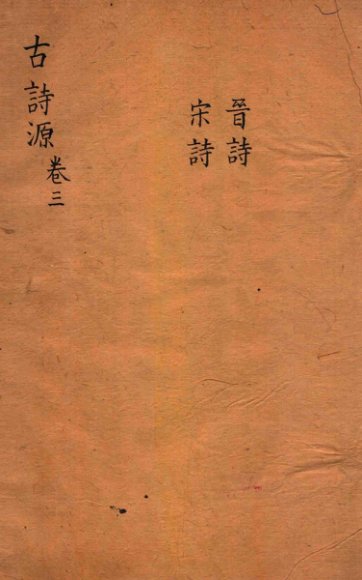 晉詩
宋詩
古詩源 卷三